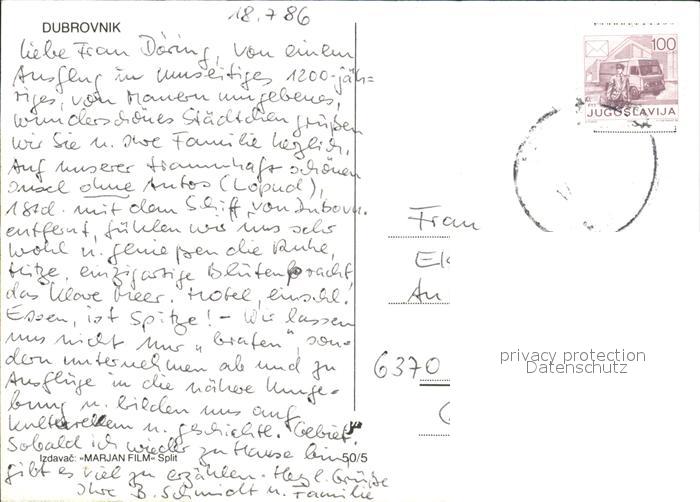 DUBROVNIK
18.7.86
Liebe Frau Döring, von einem
Ausflug in umseitiges 1200-jäh-
riges, von Mauern umgebenes,
wunderschönes Städtchen grüßen
wir Sie u. Ihre Familie herzlich.
Auf unserer traumhaft schönen
Insel ohne Autos (Lopud),
1 Std. mit dem Schiff von Dubovn.
entfernt, fühlen wir uns sehr
wohl u. genießen die Ruhe,
Hitze, einzigartige Blütenpracht,
das klare Meer. Hotel, einschl.
Essen, ist Spitze! - Wir lassen
uns nicht nur „braten", son-
dern unternehmen ab und zu
Ausflüge in die nähere Umge-
bung u. bilden uns auf
kulturellem u. geschichtl. Gebiet.
Sobald ich wieder zu Hause bin,
Izdavač: »MARJAN FILM« Split
50/5
gibt es viel zu erzählen. Herzl. Grüße
Ihre B. Schmidt u. Familie
100
JUGOSLAVIJA
Frau
An
6370
privacy protection
Datenschutz